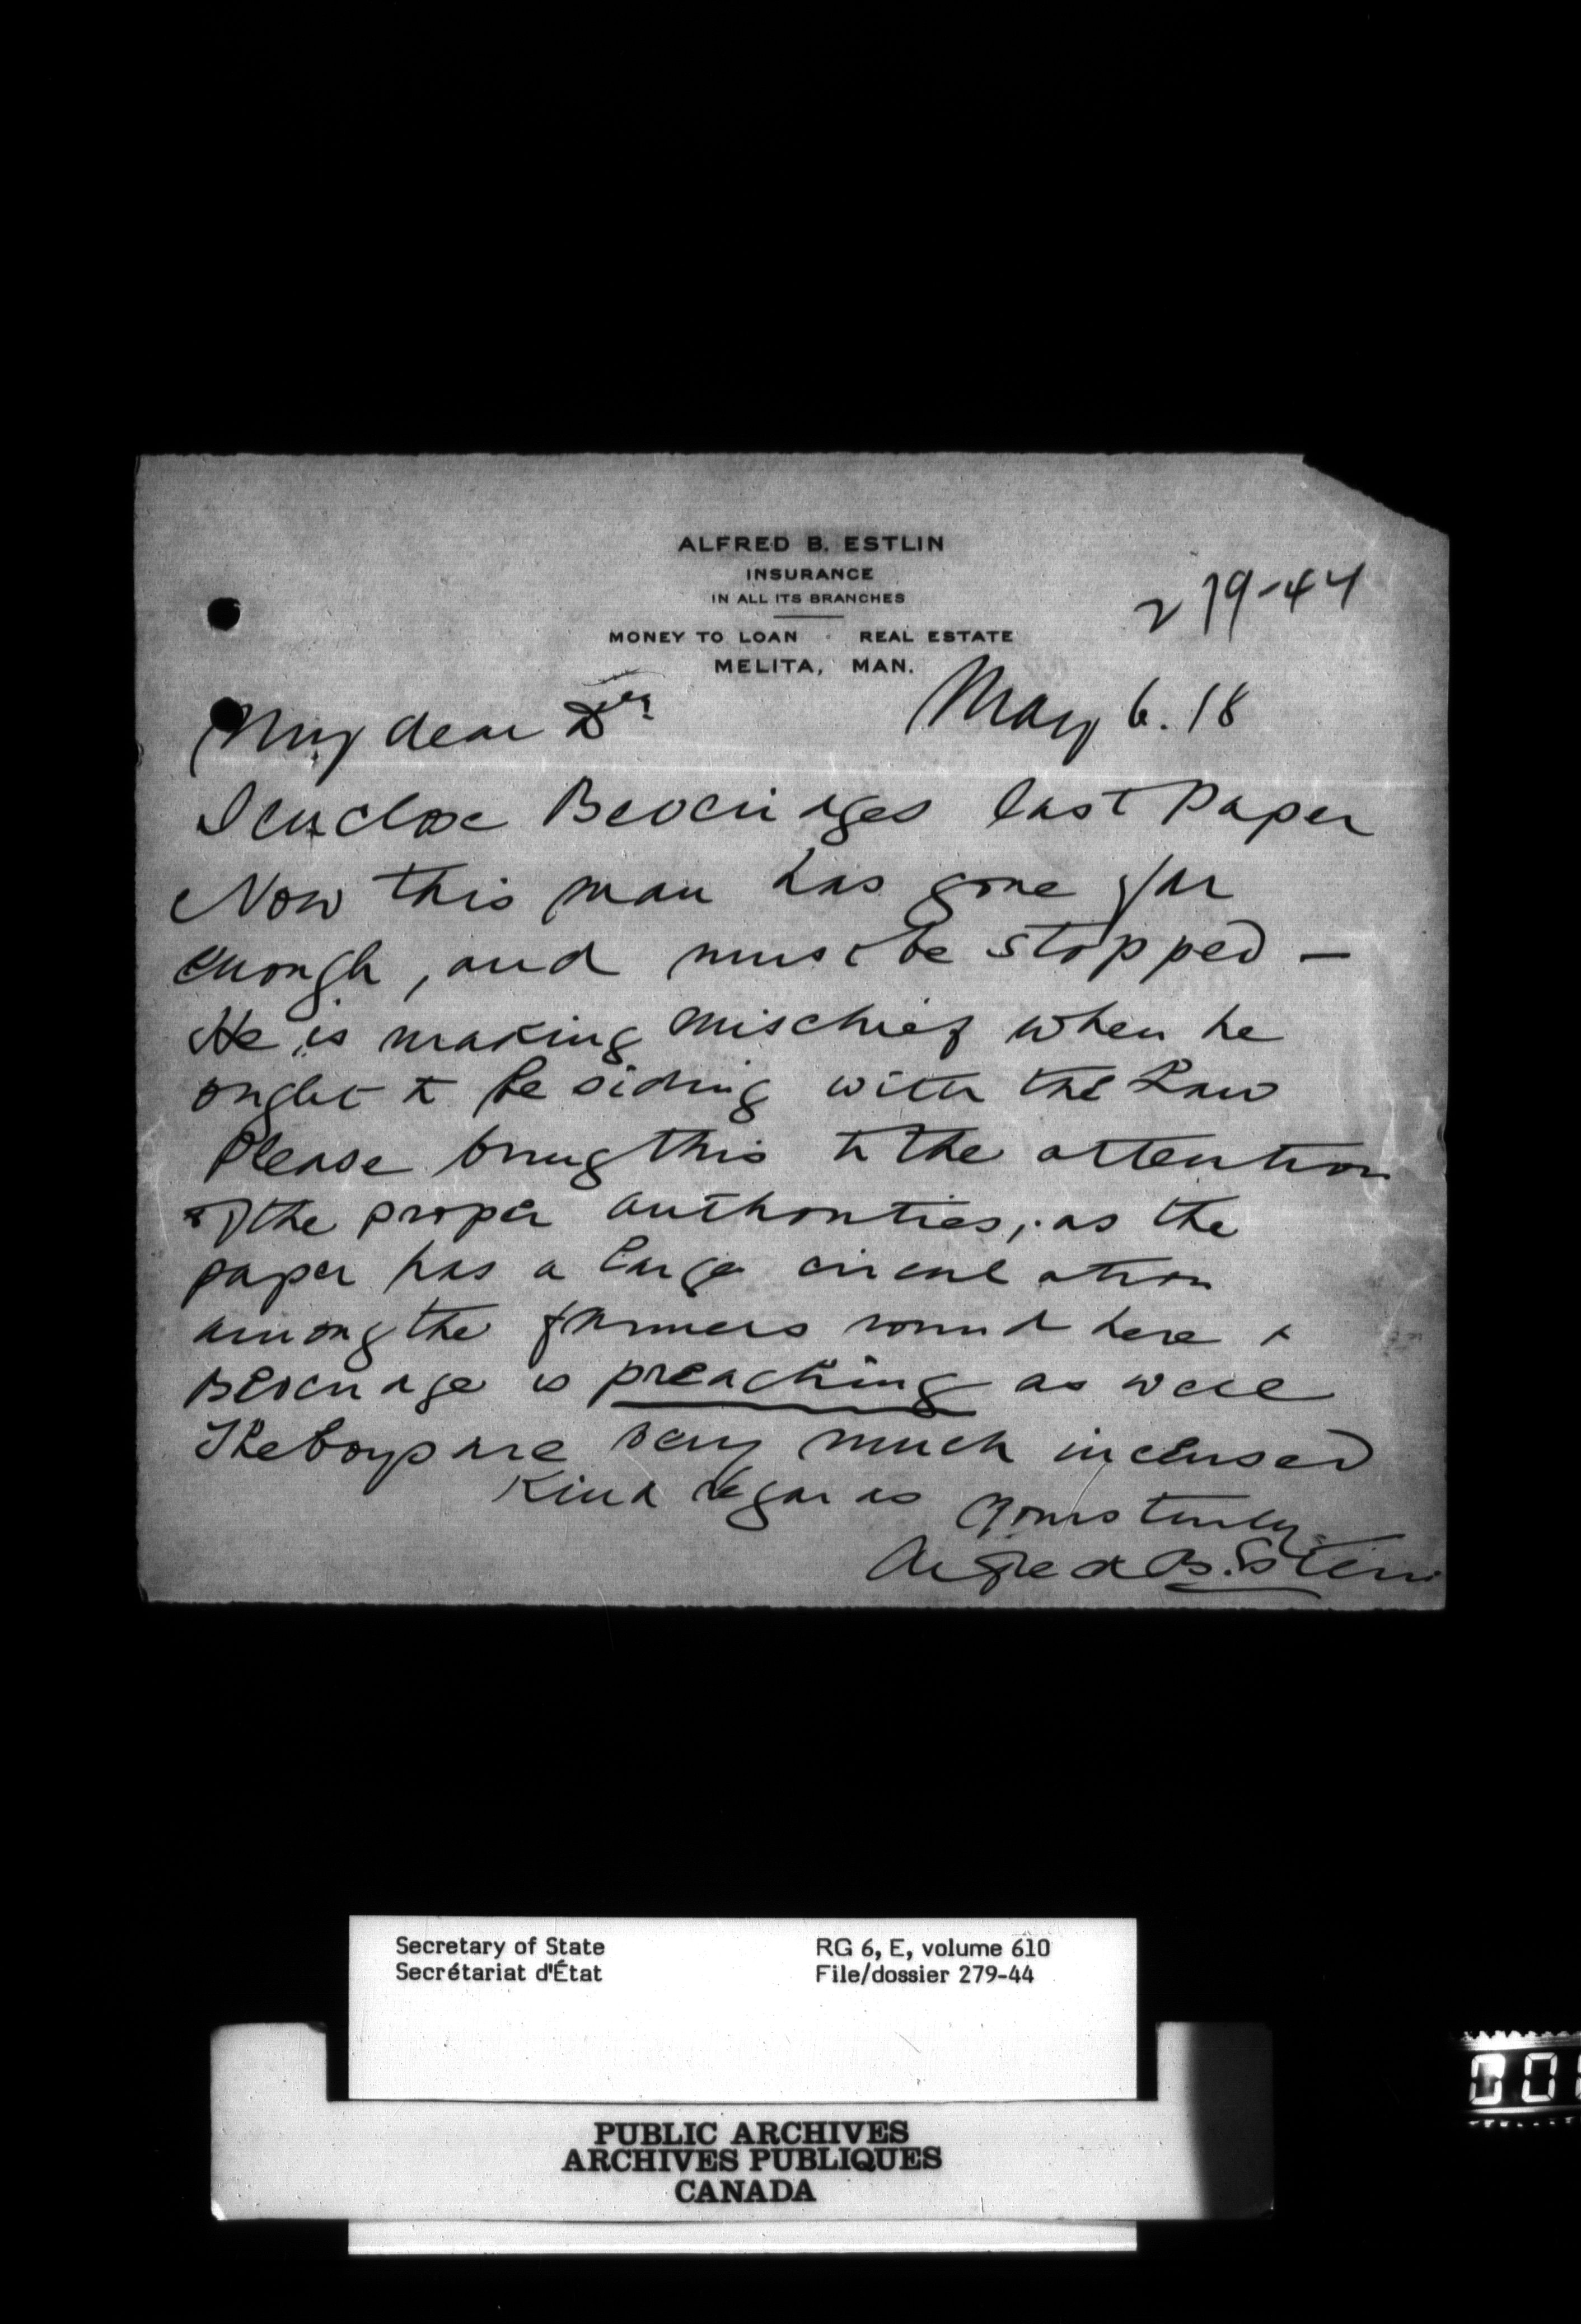 ALFRED B. ESTLIN
INSURANCE
IN ALL ITS BRANCHES
MONEY TO LOAN · REAL ESTATE
MELITA, MAN.
279-44
May 6. 18
My dear
I enclose Beveridges last Paper
Now this man has gone far
enough, and must be stopped —
He is making mischief when he
ought to be siding with the Law
Please bring this to the attention
of the proper authorities, as the
paper has a large circulation
among the farmers round here &
Beveridge is preaching as well
The boys are very much incensed
Kind regards
Yours truly
Alfred B. Estlin
Secretary of State
Secrétariat d'État
RG 6, E, volume 610
File/dossier 279-44
PUBLIC ARCHIVES
ARCHIVES PUBLIQUES
CANADA